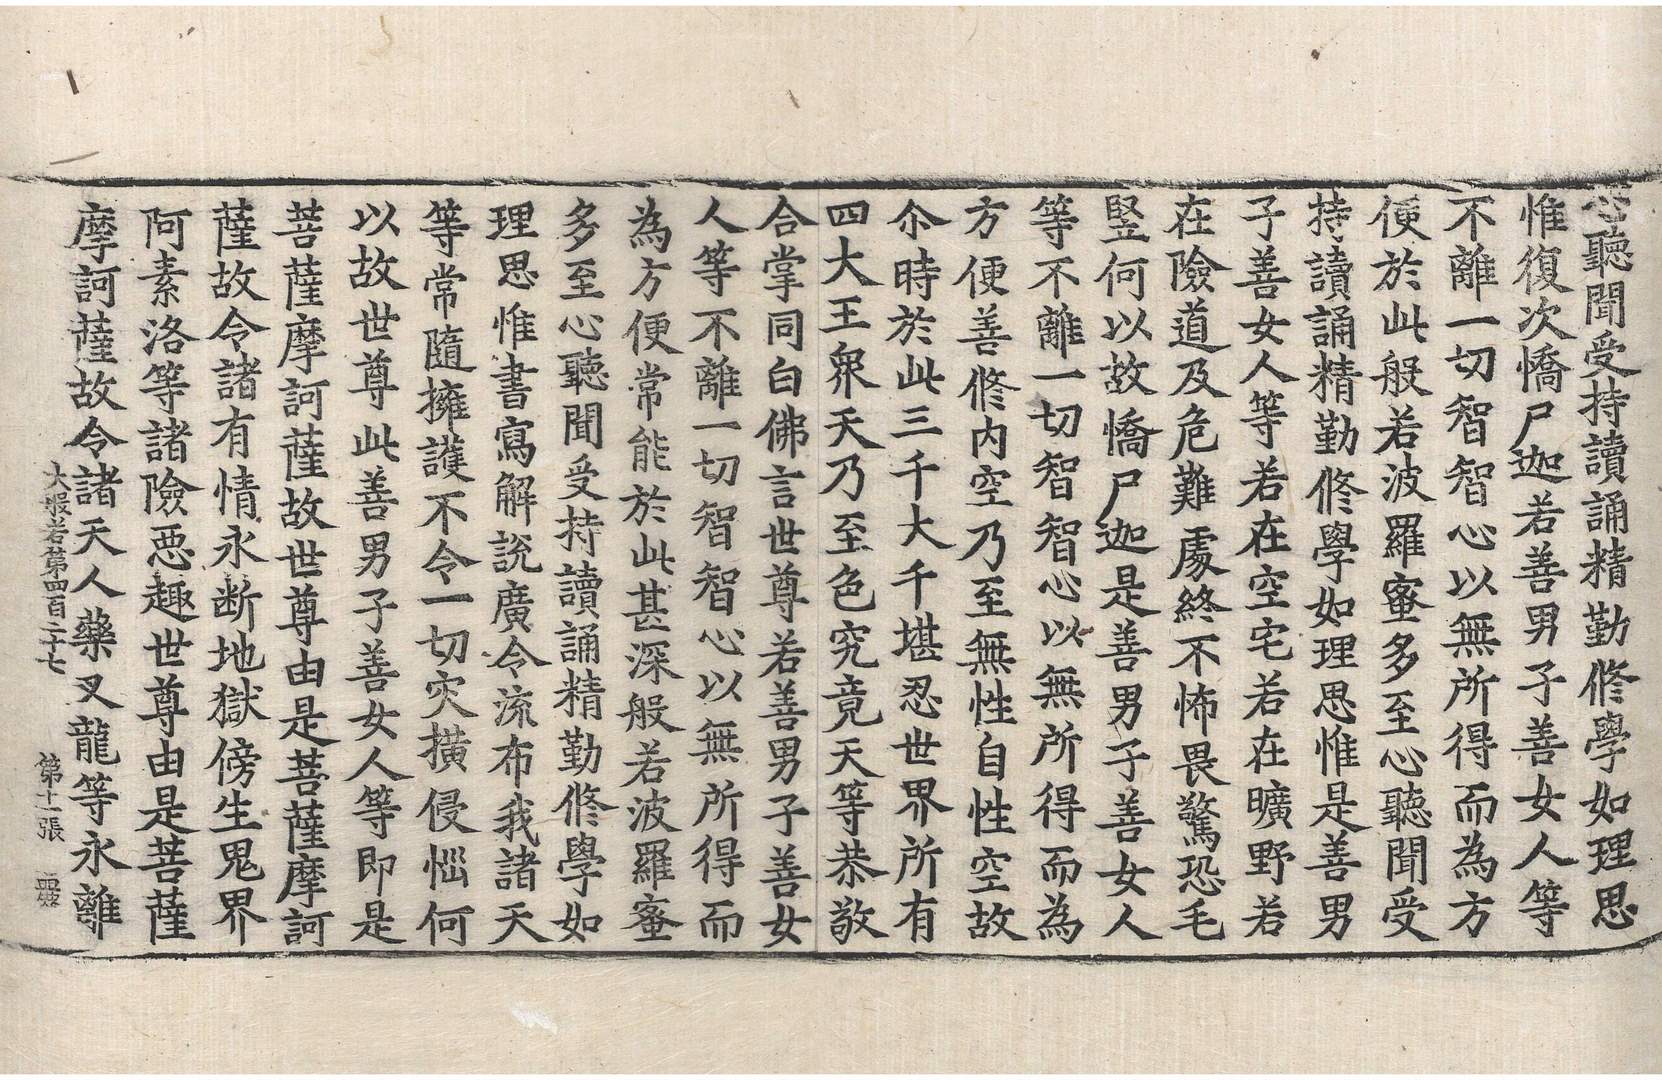 心聽聞受持讀誦精勤修學如理思
惟復次憍尸迦若善男子善女人等
不離一切智智心以無所得而為方
便於此般若波羅蜜多至心聽聞受
持讀誦精勤修學如理思惟是善男
子善女人等若在空宅若在曠野若
在險道及危難處終不怖畏驚恐毛
竪何以故憍尸迦是善男子善女人
等不離一切智智心以無所得而為
方便善修內空乃至無性自性空故
尒時於此三千大千堪忍世界所有
四大王衆天乃至色究竟天等恭敬
合掌同白佛言世尊若善男子善女
人等不離一切智智心以無所得而
為方便常能於此甚深般若波羅蜜
多至心聽聞受持讀誦精勤修學如
理思惟書寫解說廣令流布我諸天
等常隨擁護不令一切灾橫侵惱何
以故世尊此善男子善女人等即是
菩薩摩訶薩故世尊由是菩薩摩訶
薩故令諸有情永断地獄傍生鬼界
阿素洛等諸險惡趣世尊由是菩薩
摩訶薩故令諸天人藥叉龍等永離
大般若第四百二十七 第十一張 霊